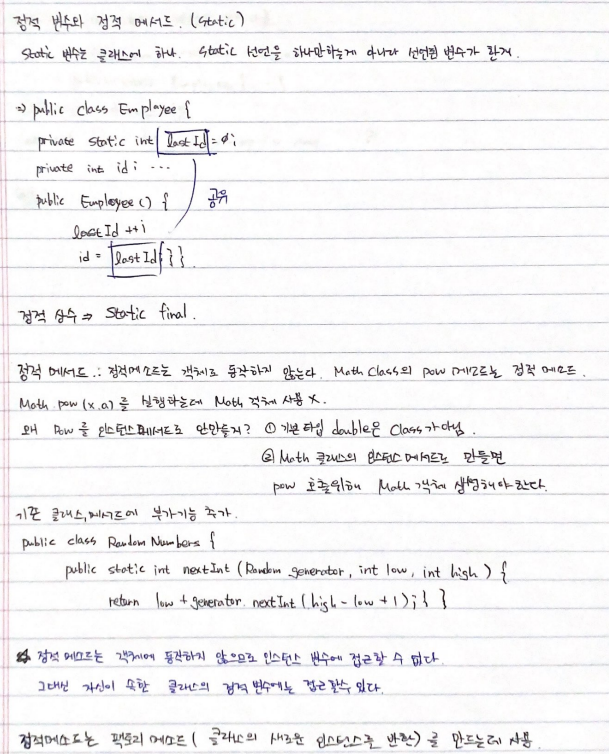 정적 변수와 정적 메서드. (Static)
Static 변수는 클래스에 하나. Static 선언을 하나만하는게 아니라 선언된 변수가 한개.
⇒ public class Employee {
private static int lastId = 0;
private int id; ...
public Employee () { 공유
lastId ++;
id = lastId; } }
정적 상수 ⇒ Static final.
정적 메서드.: 정적메소드는 객체로 동작하지 않는다. Math Class의 pow 메소드는 정적 메소드.
Math pow (x.a) 를 실행하는데 Math 객체 사용 X.
왜 Pow 를 인스턴스메서드로 안만들지? ① 기본 타입 double은 Class가 아님.
② Math 클래스의 인스턴스 메서드로 만들면
pow 호출위해 Math 객체 생성해야한다.
기존 클래스, 메서드에 부가기능 추가.
public class Random Numbers {
public static int nextInt (Random generator, int low, int high) {
return low + generator. nextInt (high - low + 1); } }
☆ 정적 메소드는 객체에 동작하지 않으므로 인스턴스 변수에 접근할 수 없다.
그대신 자신이 속한 클래스의 정적 변수에는 접근 할수 있다.
정적메소드는 팩토리 메소드 ( 클래스의 새로운 인스턴스를 반환) 를 만드는데 사용